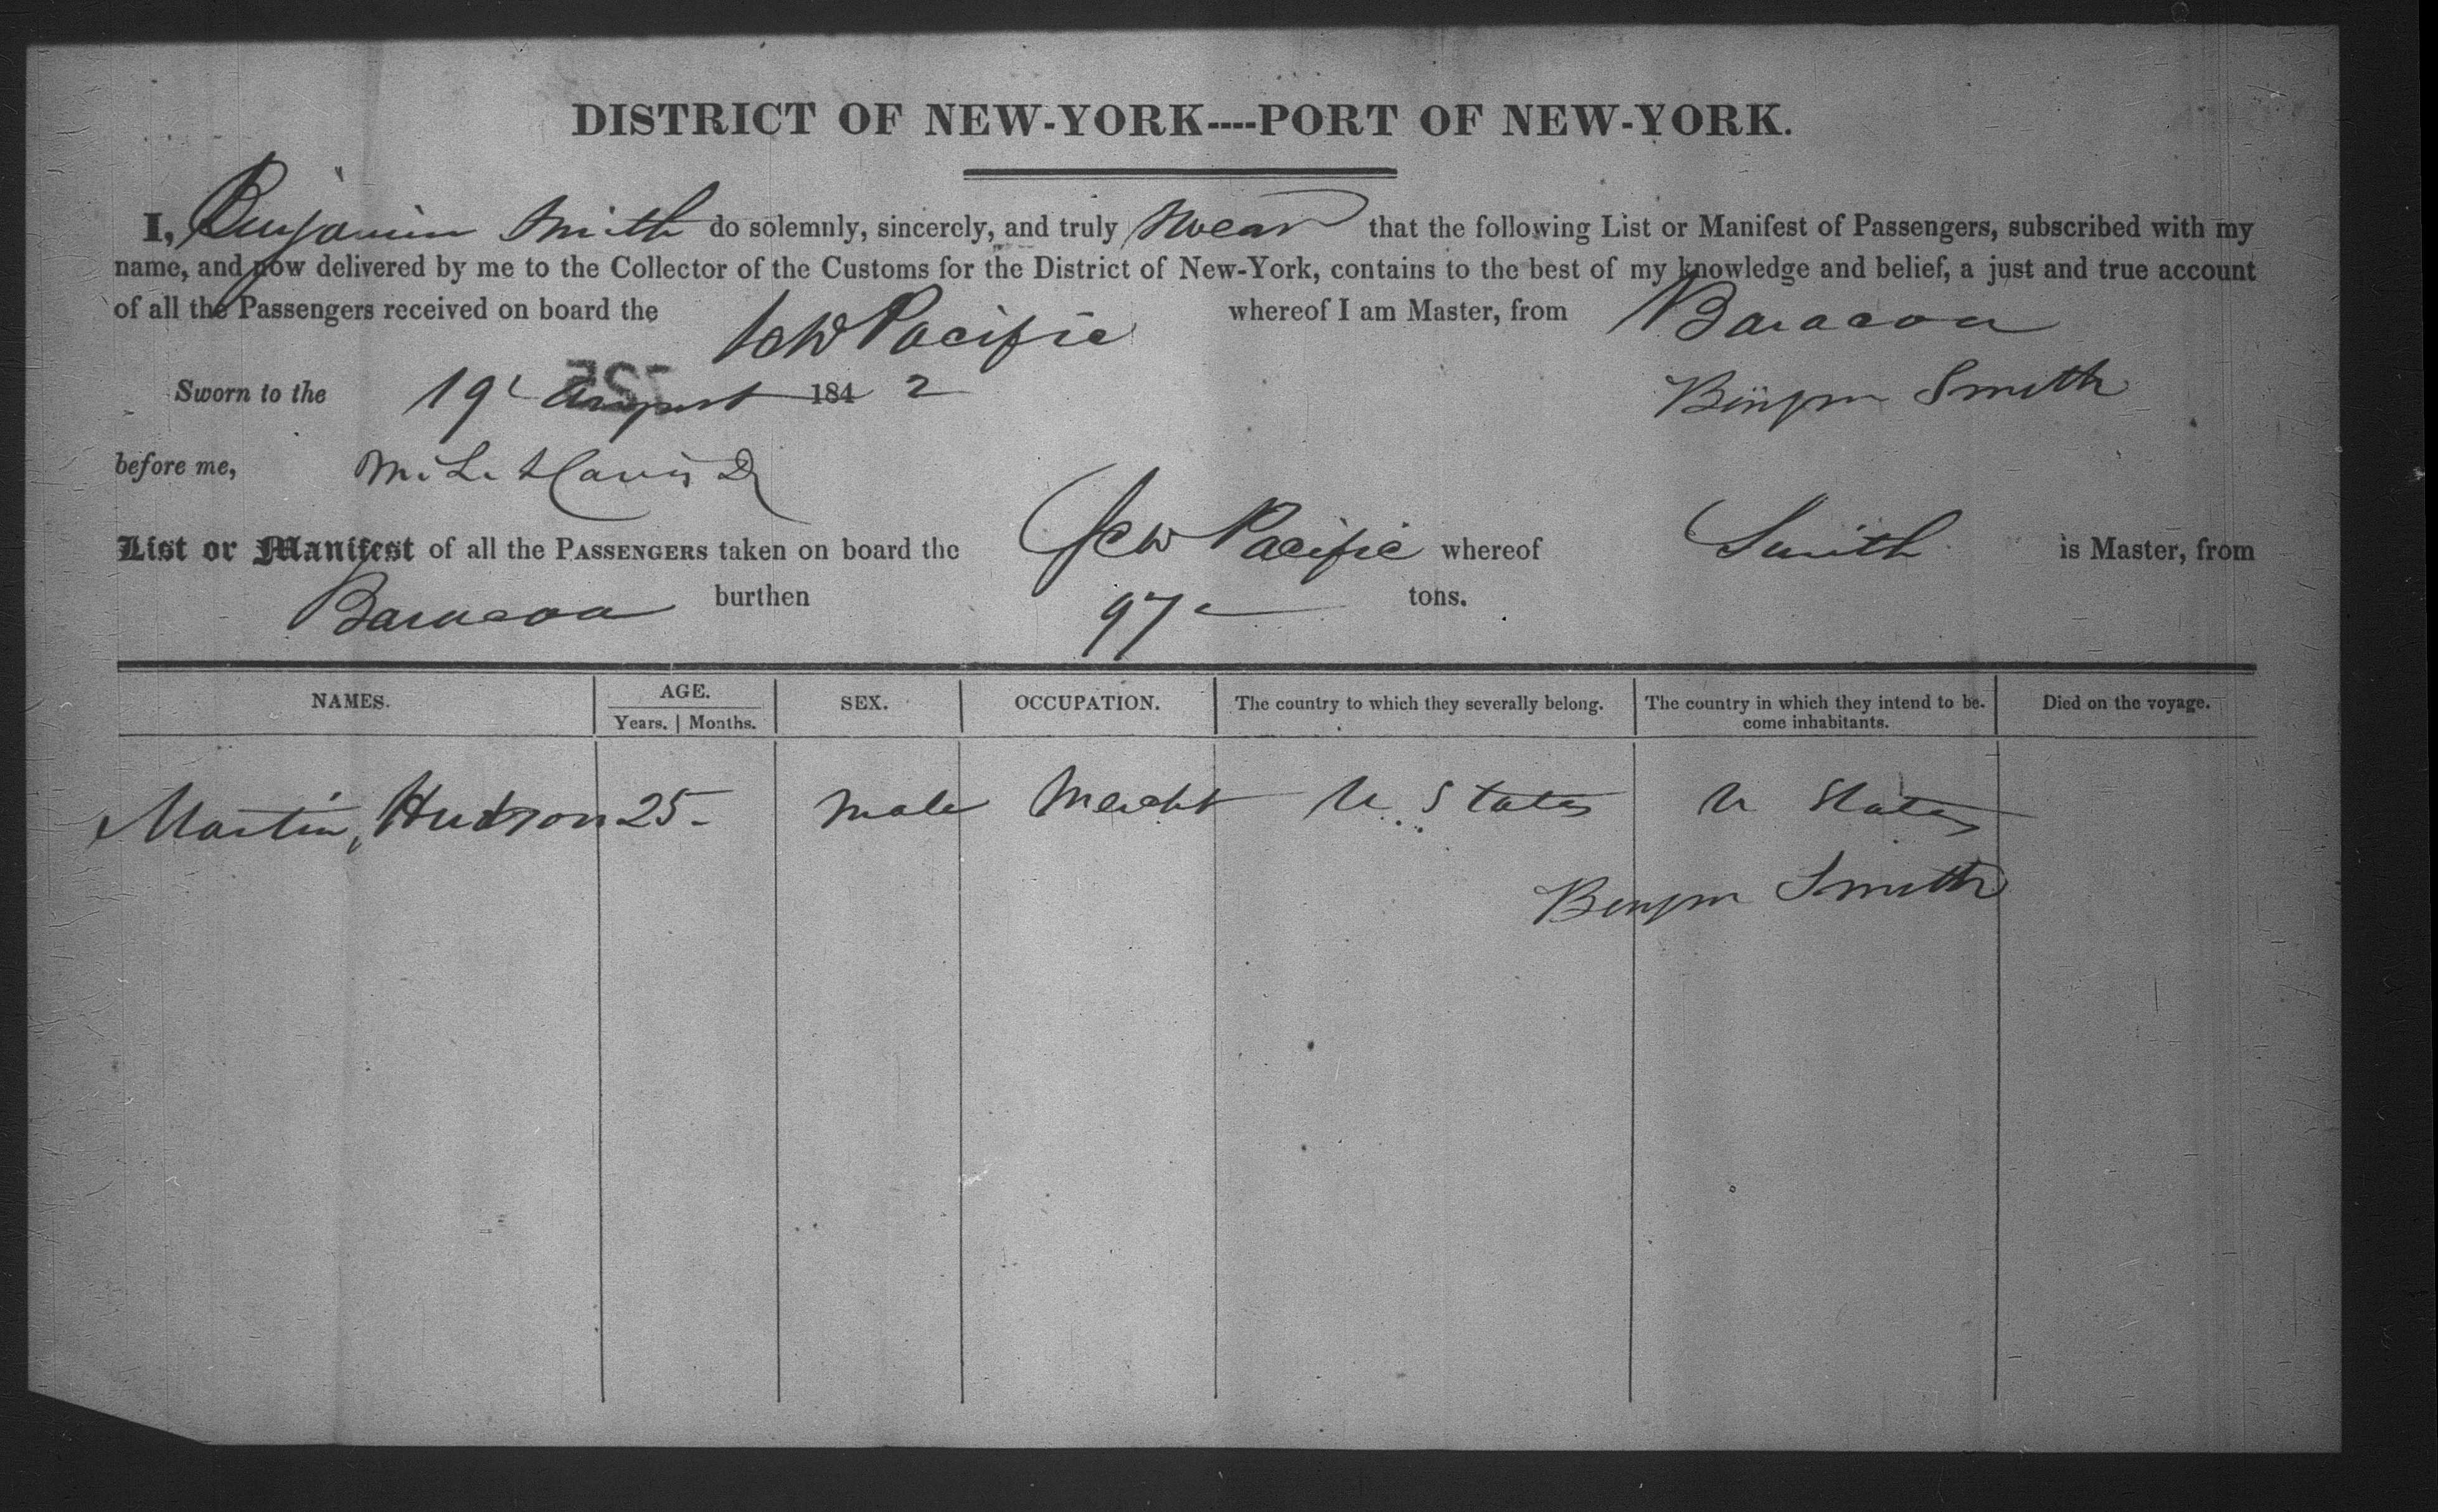 DISTRICT OF NEW-YORK----PORT OF NEW-YORK.
I, Benjamin Smith do solemnly, sincerely, and truly Swear that the following List or Manifest of Passengers, subscribed with my
name, and now delivered by me to the Collector of the Customs for the District of New-York, contains to the best of my knowledge and belief, a just and true account
of all the Passengers received on board the Sch Pacific whereof I am Master, from Baracoa
Sworn to the 19 August 1842 Binjm Smith
before me,
List or Manifest of all the PASSENGERS taken on board the Sch Pacific whereof Smith is Master, from
Baracoa burthen 97 tons.
NAMES. AGE. SEX. OCCUPATION. The country to which they severally belong. The country in which they intend to be- Died on the voyage.
Years. | Months. come inhabitants.
Martin, Hudson 25- male Mercht U. States U States
Binjm Smith